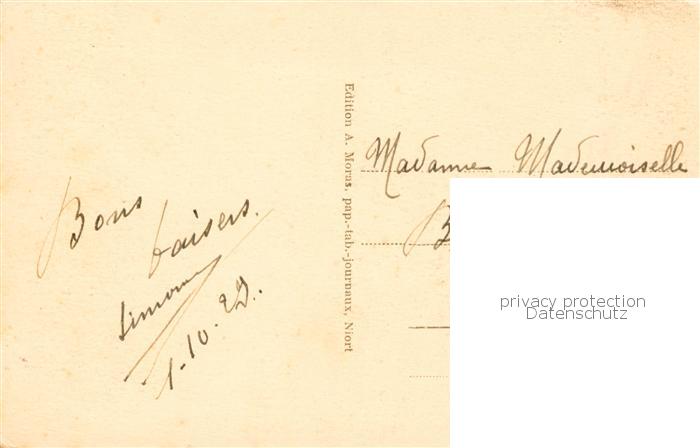 Bons
baisers.
Simone
1-10.29.
Edition A. Moras, pap.-tab.-journaux, Niort
Madame Mademoiselle
privacy protection
Datenschutz